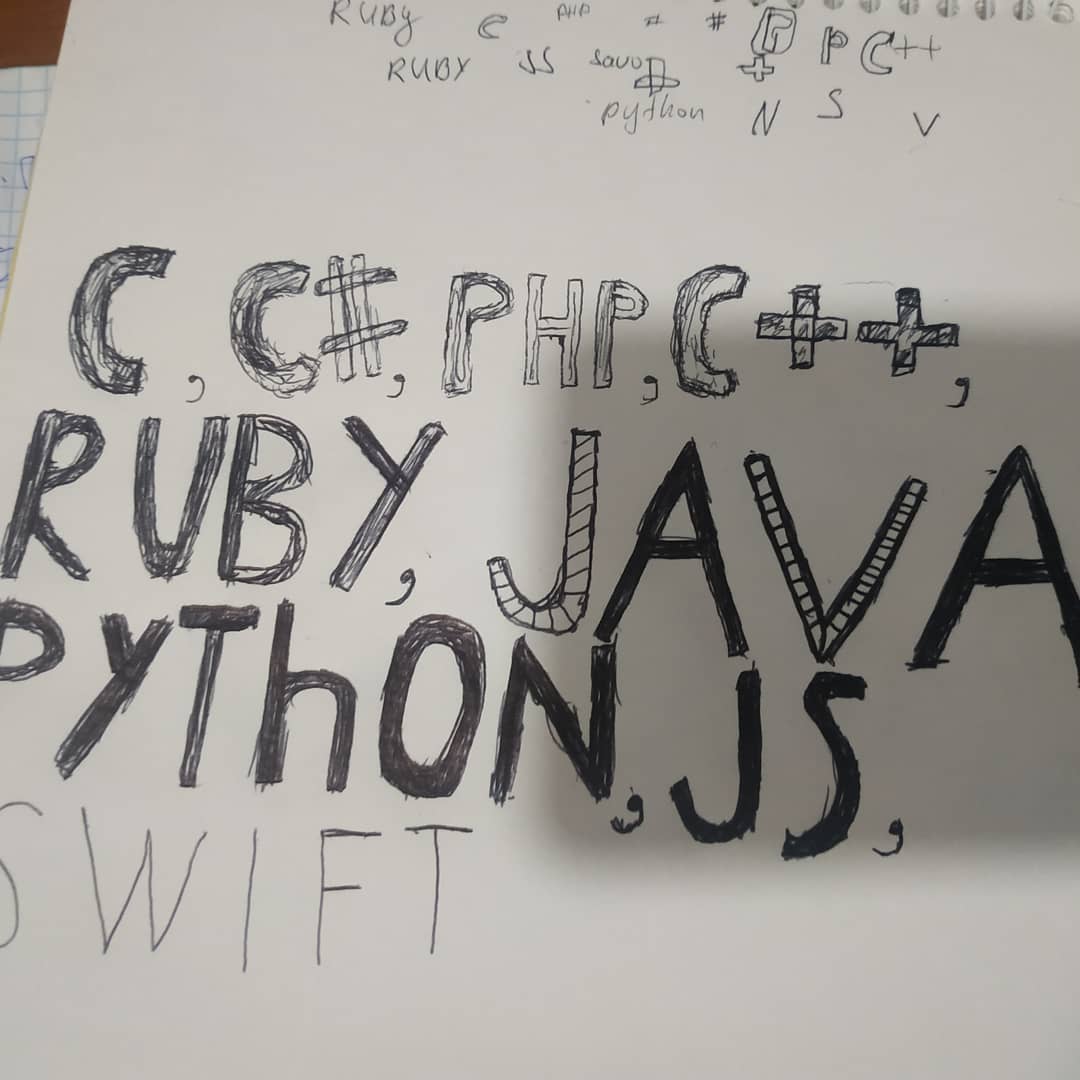 RUBy C PHP # # P P C++
RUBY JS +
python N S V
C, C#, PHP, C++,
RUBY, JAVA
PYThON, JS,
SWIFT